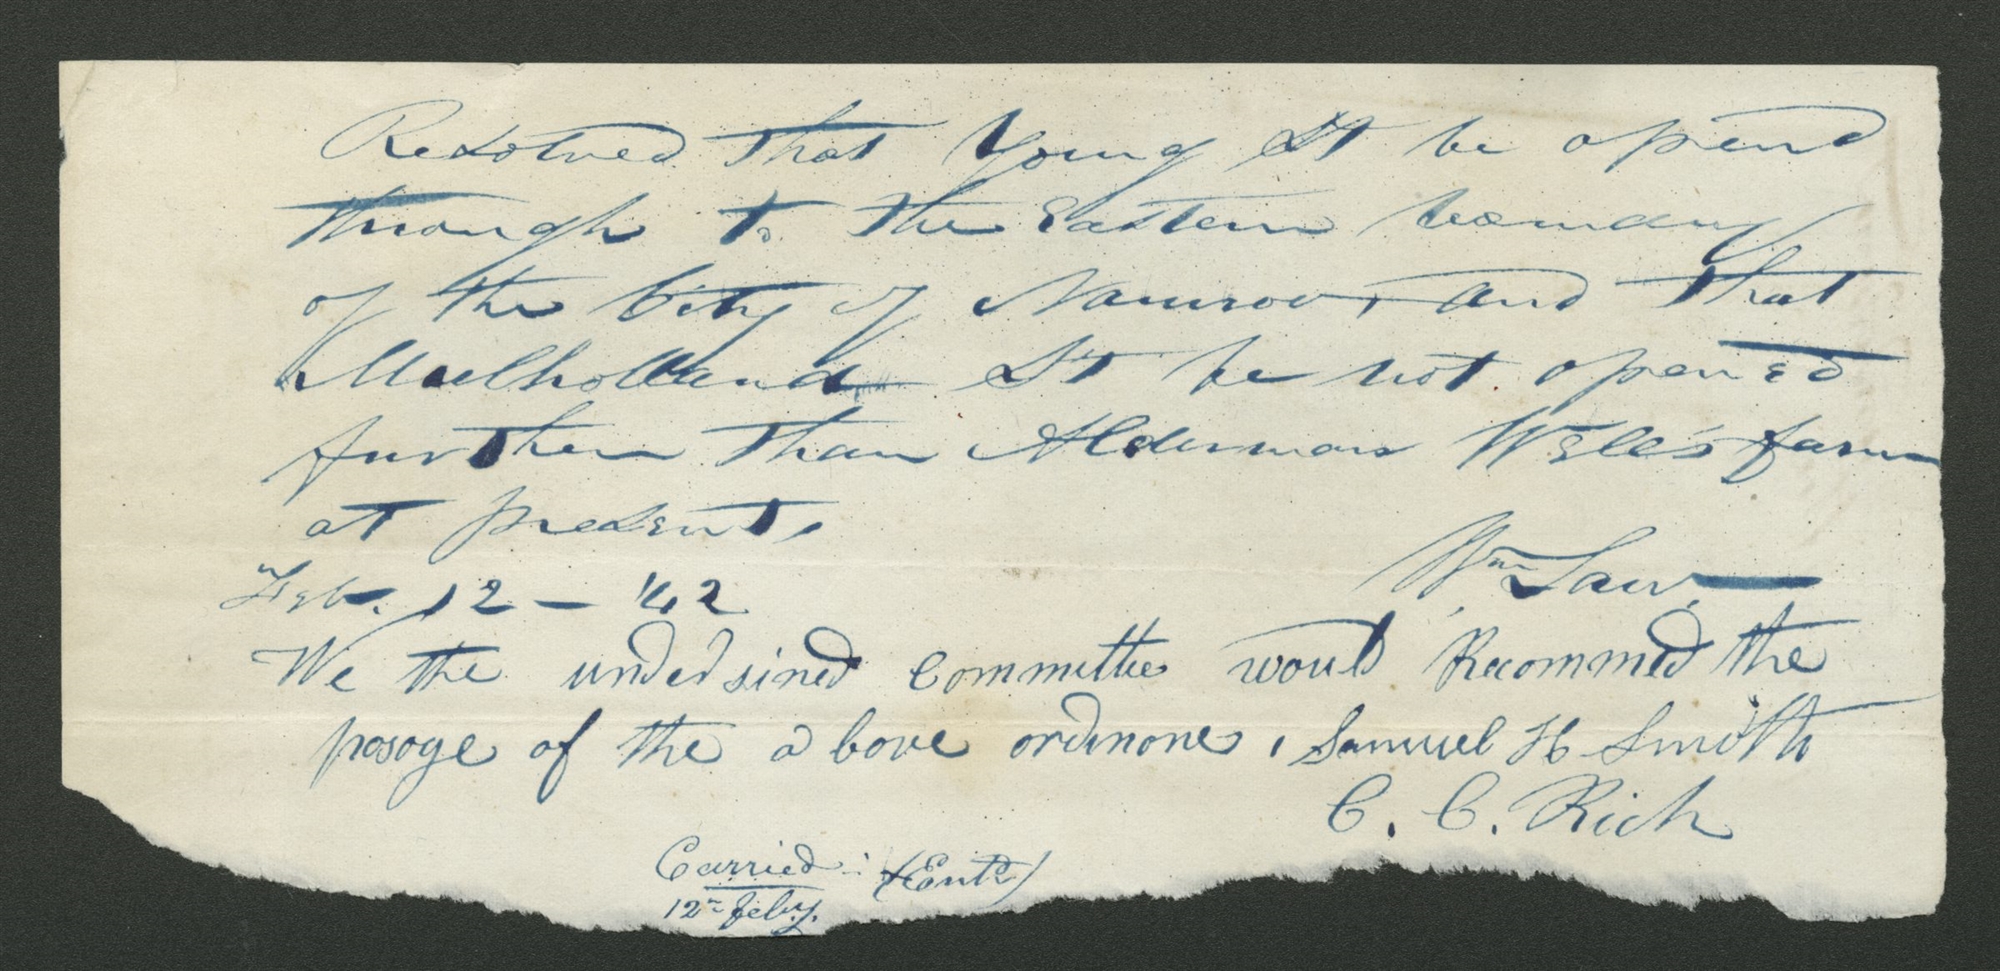 Resolved that Young St be opend
through to the Eastern boundary
of the City of Nauvoo, and that
Mulholland St be not opened
further than Alderman Wells farm
at present,
Wm Law.
Feb. 12 — '42
We the undersined Committee would Recommed the
posoge of the above ordinone, Samuel H Smith
C. C. Rich
Carried: (Entd)
12th Feby.